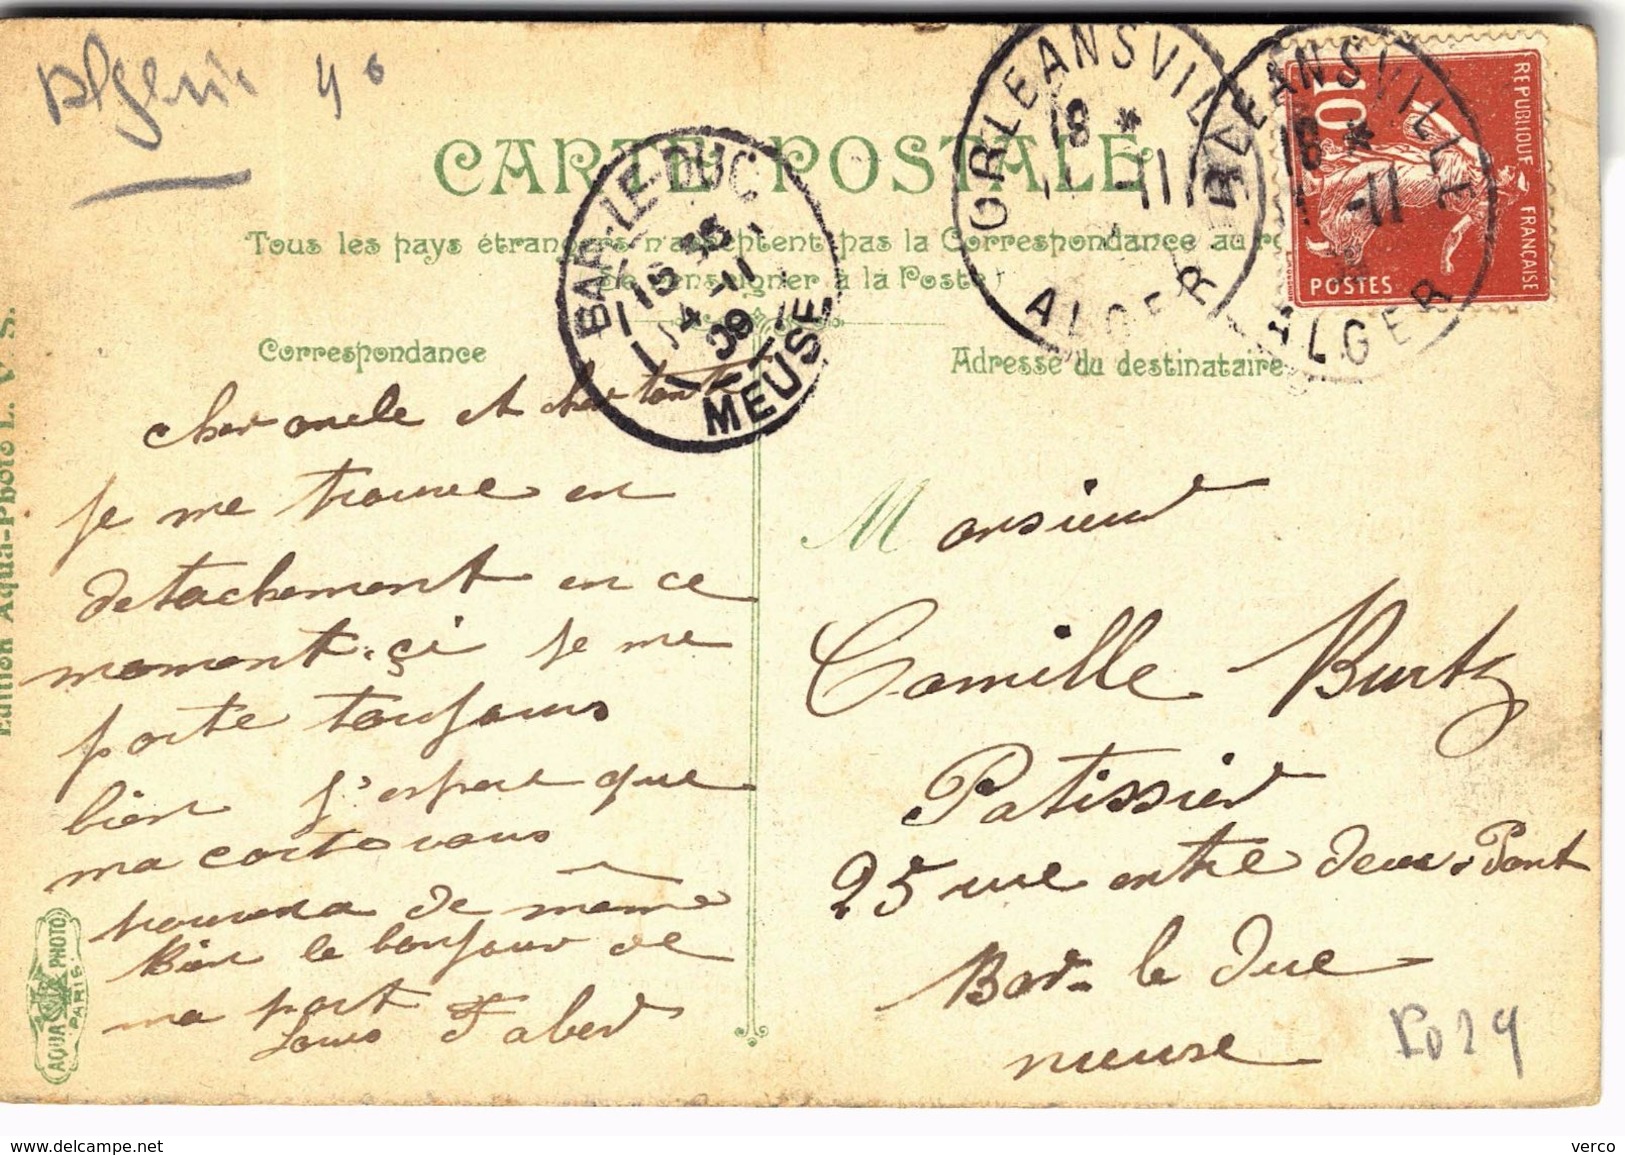 Algerie 40
CARTE POSTALE
Tous les pays étrangers n'acceptent pas la Correspondance au
Se renseigner à la Poste)
Correspondance
Adresse du destinataire
ORLEANSVILLE
18 *
-11
ALGER
ORLEANSVILLE
18 *
-11
ALGER
REPUBLIQUE FRANÇAISE
10
POSTES
BAR-LE-DUC
15 35
14-11
09
MEUSE
cher oncle et cher tante
je me trouve en
detachement en ce
moment.çi je me
porte toujours
bien j'espere que
ma carte vous
trouvera de même
Bien le bonjour de
ma part
Louis Faber
Monsieur
Camille Burtz
Patissier
25 rue entre deux Pont
Bar-le Duc
meuse
Edition Aqua-Photo L. V. S.
AQUA PHOTO
PARIS
www.delcampe.net
verco